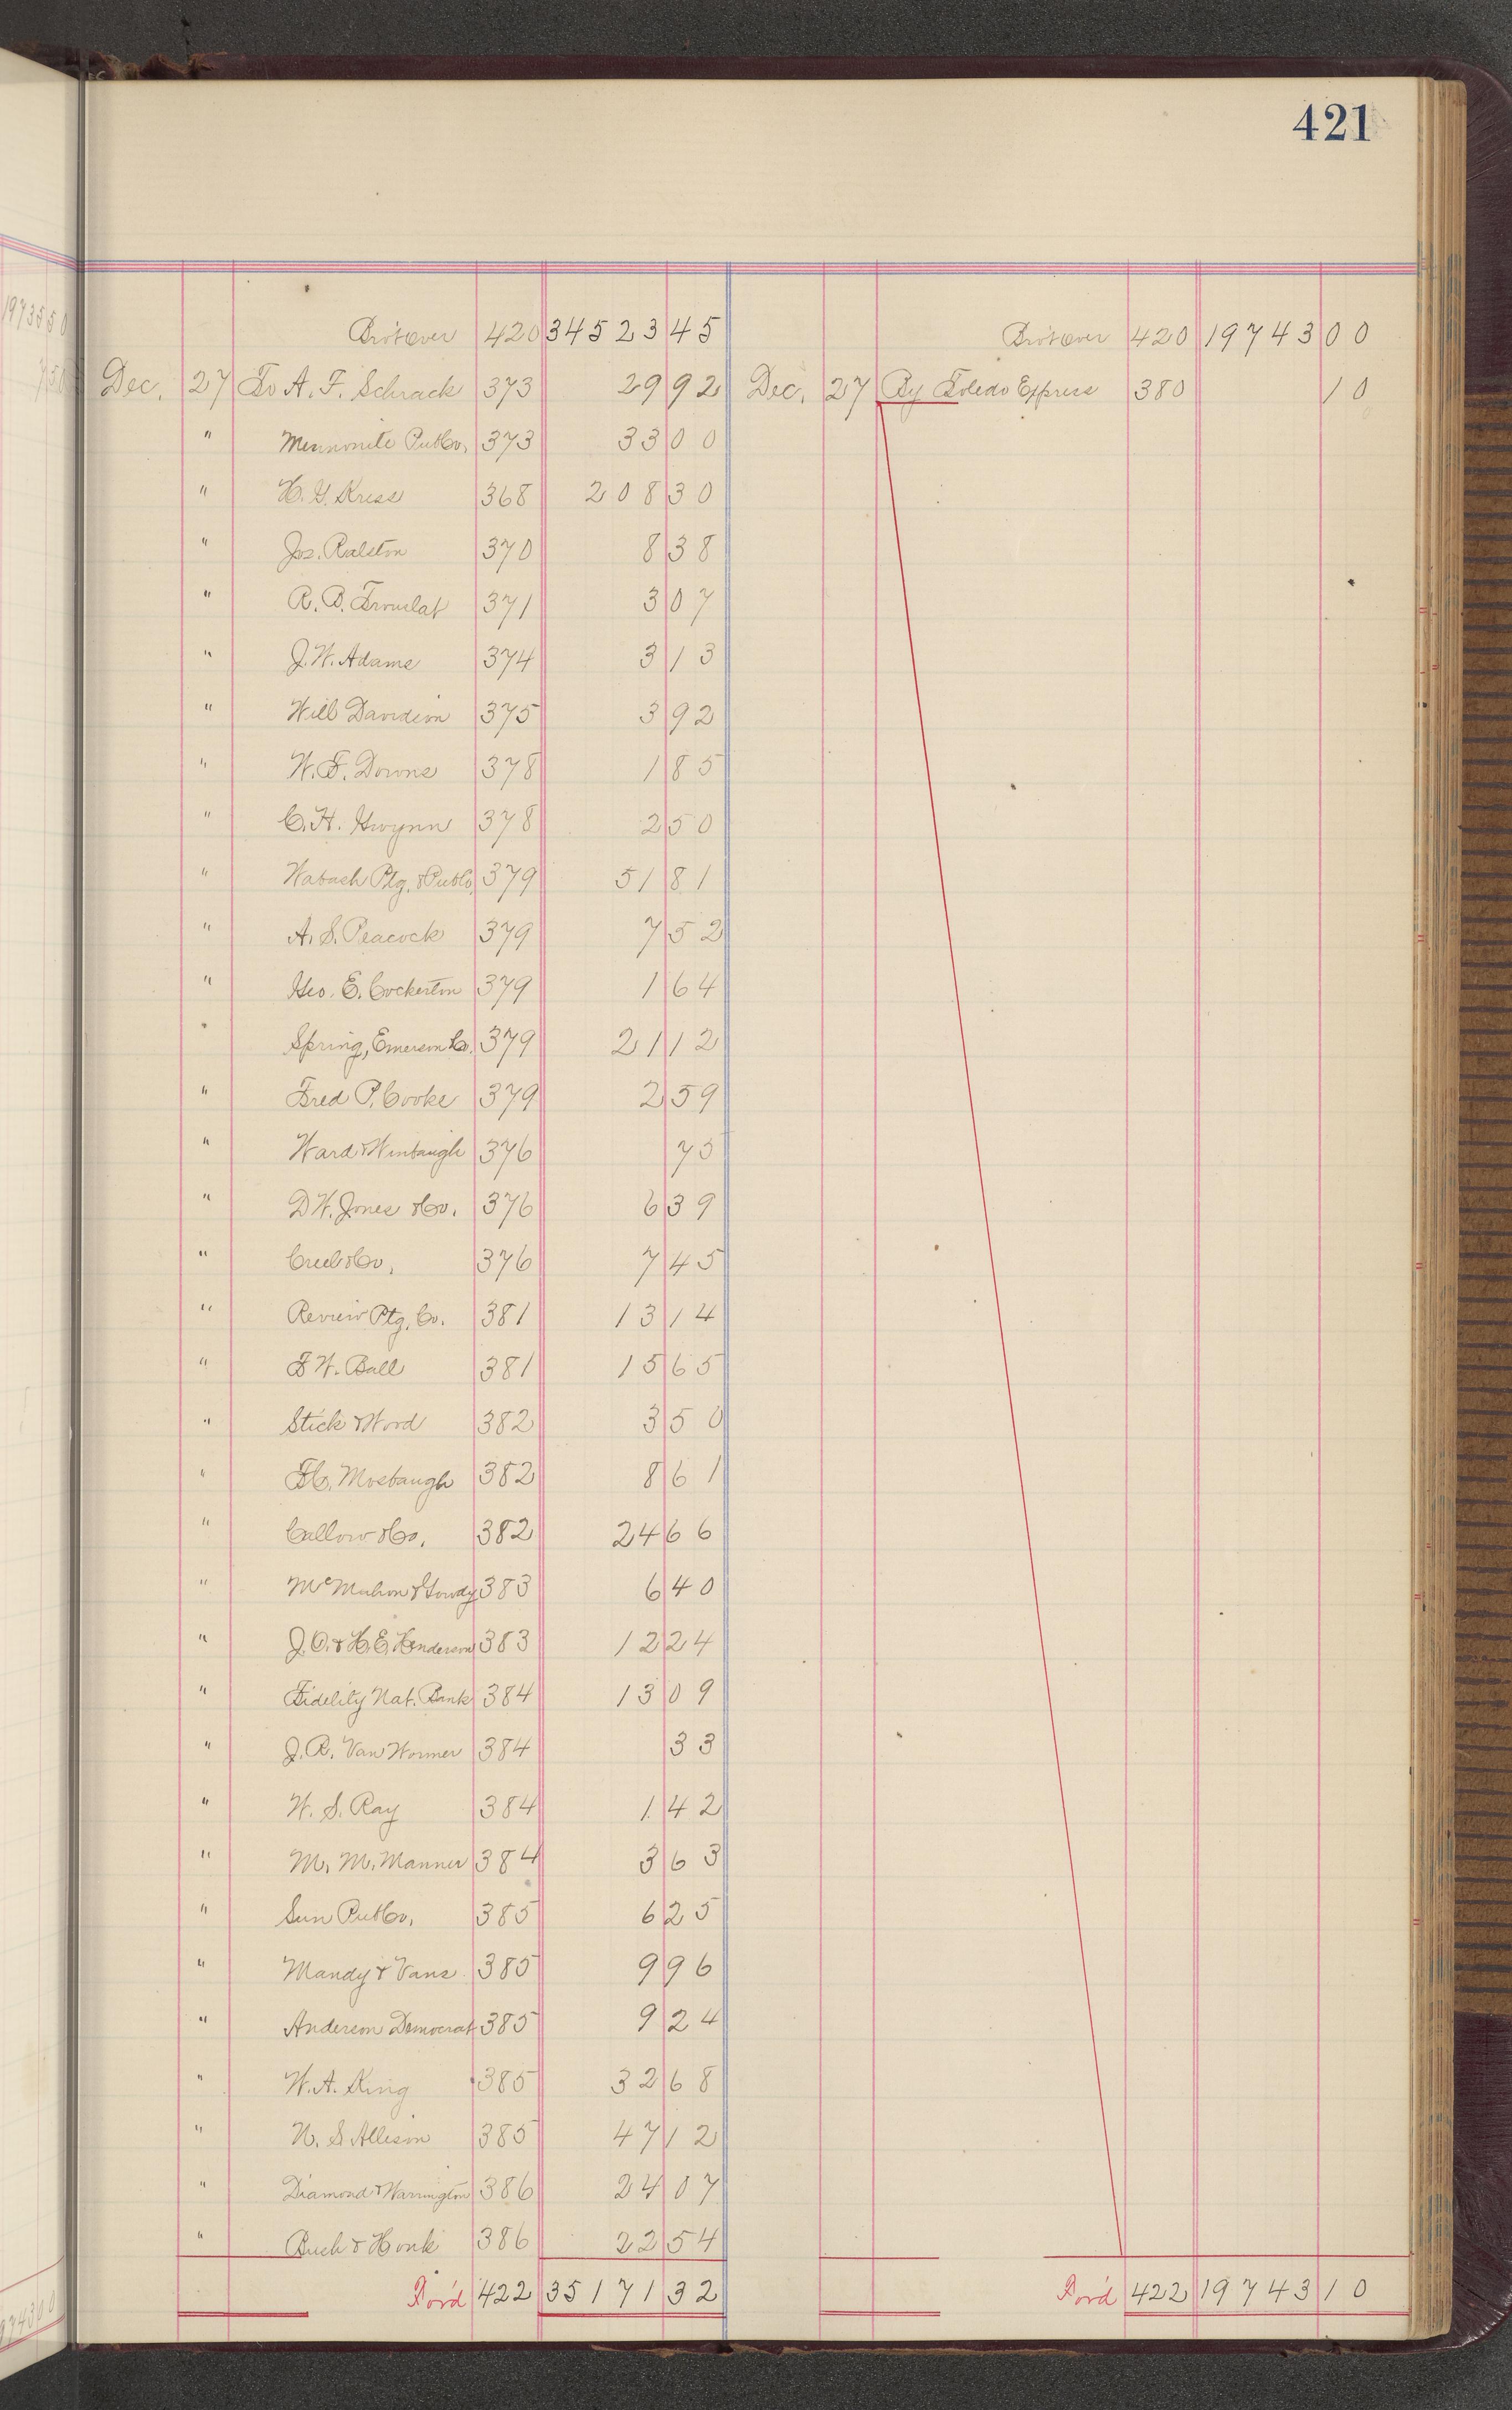 421
Bro't over 420 34523 45
Dec. 27 To A. F. Schrack 373 29 92
" Mennonite Pub Co. 373 33 00
" H. G. Kress 368 208 30
" Jos. Ralston 370 8 38
" R. B. 371 3 07
" J. W. Adams 374 3 13
" Will Davidson 375 3 92
" W. F. Downs 378 1 85
" C. H. Gwynn 378 2 50
" Wabash Ptg. & Pub Co. 379 51 81
" A. S. Peacock 379 7 52
" Geo. E. Cockerton 379 1 64
" Spring, Emerson & Co. 379 21 12
" Fred P. Cooke 379 2 59
" Ward & 376 75
" D W. Jones & Co. 376 6 39
" & Co. 376 7 45
" Review Ptg. Co. 381 13 14
" F W. Ball 381 15 65
" Stick & Word 382 3 50
" Mosbaugh 382 8 61
" Callow & Co. 382 24 66
" McMahon & Gowdy 383 6 40
" J. O. & H. E. Henderson 383 12 24
" Fidelity Nat. Bank 384 13 09
" J. R. Van Wormer 384 33
" W. S. Ray 384 1 42
" M. M. Manner 384 3 63
" Sun Pub Co. 385 6 25
" Mandy & Vans 385 9 96
" Anderson Democrat 385 9 24
" W. A. King 385 32 68
" N. S. Allison 385 47 12
" Diamond & Warrington 386 24 07
" & Honk 386 22 54
For'd 422 35171 32
Bro't over 420 19743 00
Dec. 27 By Toledo Express 380 10
For'd 422 19743 10